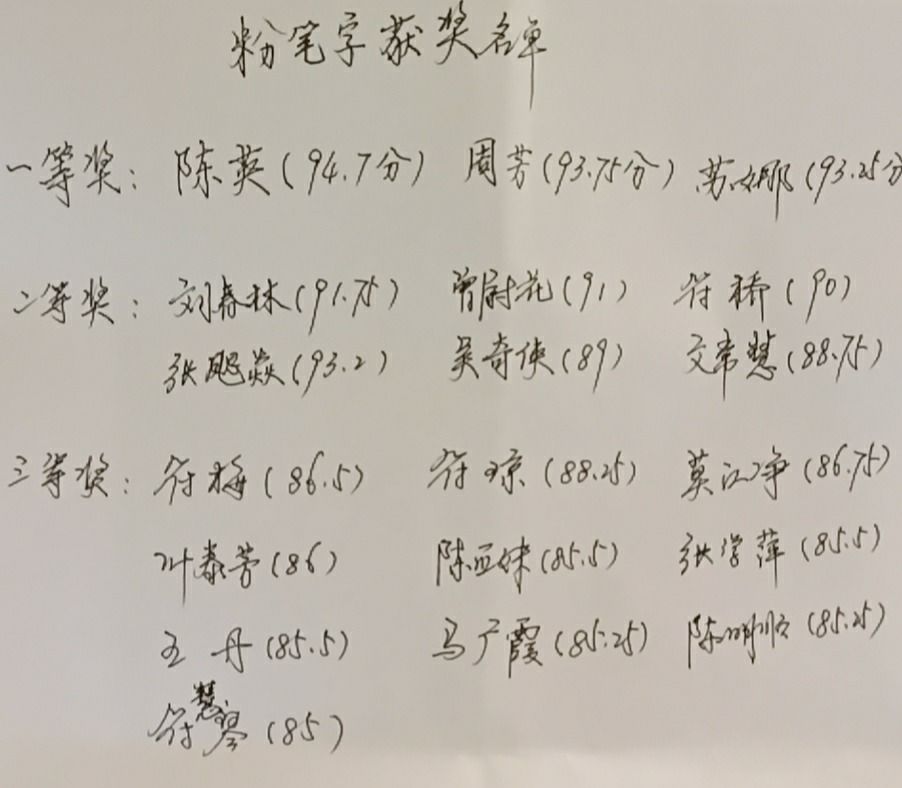 粉笔字获奖名单
一等奖：陈英（94.7分） 周芳（93.75分） 苏娜（93.25分
二等奖：刘春林（91.75） 曾尉花（91） 符桥（90）
张飓焱（93.2） 吴奇侠（89） 文常慧（88.75）
三等奖：符梅（86.5） 符琼（88.25） 莫江净（86.75）
叶泰芳（86） 陈亚妹（85.5） 张学萍（85.5）
王丹（85.5） 马广霞（85.25） 陈明顺（85.25）
符慧琴（85）